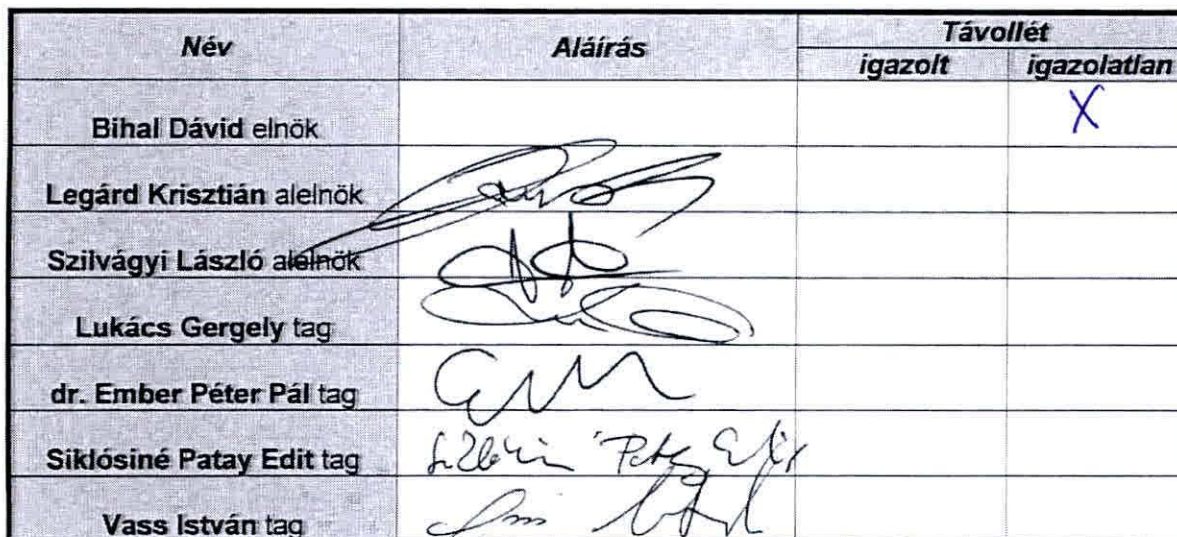 Név Aláírás Távollét
igazolt igazolatlan
Bihal Dávid elnök X
Legárd Krisztián alelnök
Szilvágyi László alelnök
Lukács Gergely tag
dr. Ember Péter Pál tag
Siklósiné Patay Edit tag
Vass István tag